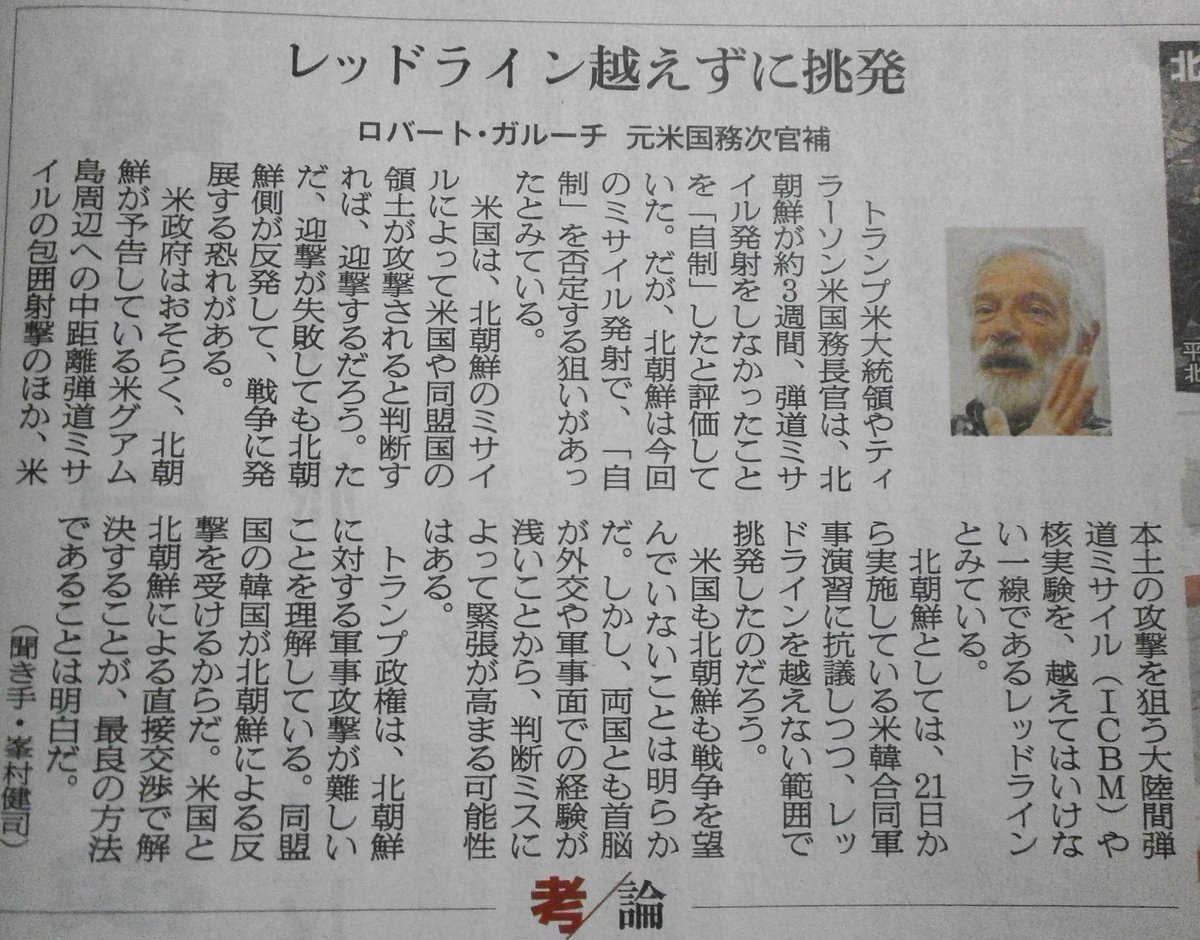 レッドライン越えずに挑発
ロバート・ガルーチ 元米国務次官補
トランプ米大統領やティ
ラーソン米国務長官は、北
朝鮮が約3週間、弾道ミサ
イル発射をしなかったこと
を「自制」したと評価して
いた。だが、北朝鮮は今回
のミサイル発射で、「自
制」を否定する狙いがあっ
たとみている。
米国は、北朝鮮のミサイ
ルによって米国や同盟国の
領土が攻撃されると判断す
れば、迎撃するだろう。た
だ、迎撃が失敗しても北朝
鮮側が反発して、戦争に発
展する恐れがある。
米政府はおそらく、北朝
鮮が予告している米グアム
島周辺への中距離弾道ミサ
イルの包囲射撃のほか、米
本土の攻撃を狙う大陸間弾
道ミサイル(ICBM)や
核実験を、越えてはいけな
い一線であるレッドライン
とみている。
北朝鮮としては、21日か
ら実施している米韓合同軍
事演習に抗議しつつ、レッ
ドラインを越えない範囲で
挑発したのだろう。
米国も北朝鮮も戦争を望
んでいないことは明らか
だ。しかし、両国とも首脳
が外交や軍事面での経験が
浅いことから、判断ミスに
よって緊張が高まる可能性
はある。
トランプ政権は、北朝鮮
に対する軍事攻撃が難しい
ことを理解している。同盟
国の韓国が北朝鮮による反
撃を受けるからだ。米国と
北朝鮮による直接交渉で解
決することが、最良の方法
であることは明白だ。
(聞き手・峯村健司)
考/論
北
平
北